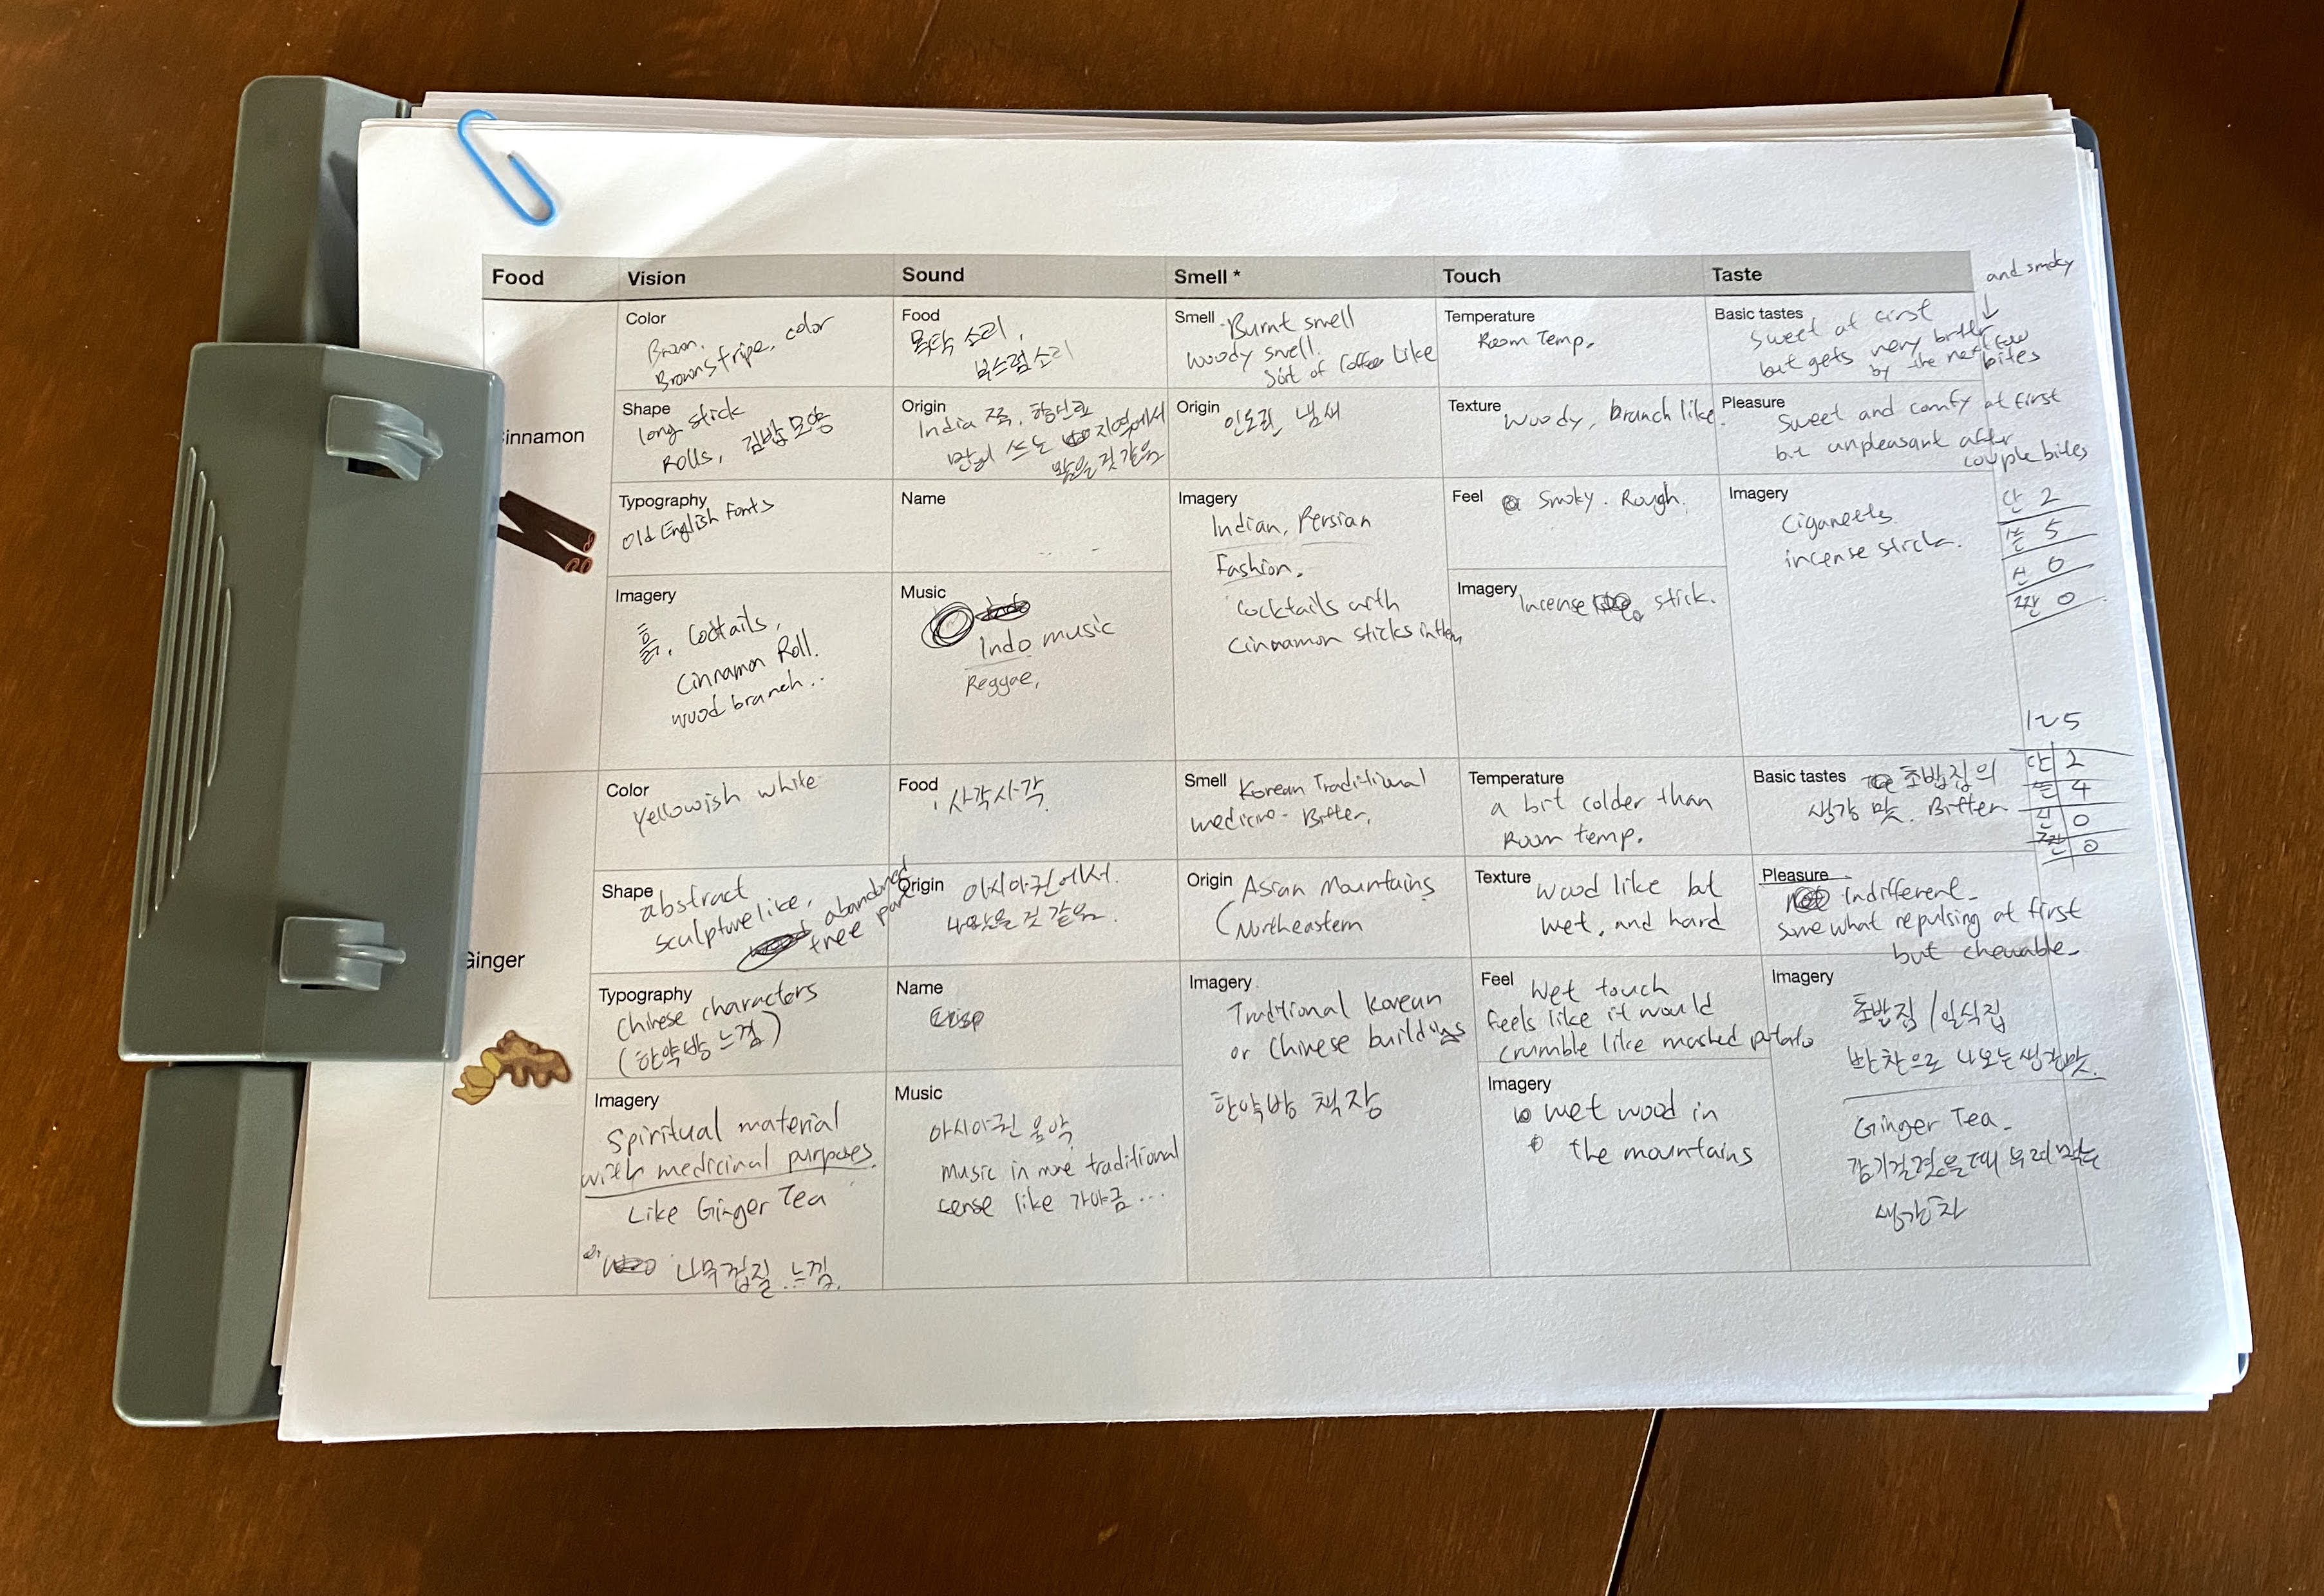 Food
Vision
Sound
Smell *
Touch
Taste
and smoky
innamon
Color
Brown,
Brown stripe, color
Food
목탁 소리,
부스럭 소리
Smell
Burnt smell
woody smell,
Sort of Coffee Like
Temperature
Room Temp.
Basic tastes
Sweet at first
but gets very bitter
by the next few
bites
Shape
long stick
Rolls, 김밥모양
Origin
India 쪽, 향신료
많이 쓰는 지역에서
왔을 것 같음
Origin
인도 냄새
Texture
woody, branch like.
Pleasure
Sweet and comfy at first
but unpleasant after
couple bites
Typography
Old English fonts
Name
Imagery
Indian, Persian
Fashion.
Cocktails with
Cinnamon sticks in them
Feel
Smoky. Rough.
Imagery
Cigarette
incense stick.
단 2
쓴 5
신 0
짠 0
Imagery
흙, Cocktails,
Cinnamon Roll.
wood branch..
Music
Indo music
Reggae,
Imagery
Incense stick.
Ginger
Color
Yellowish white
Food
사각사각
Smell
Korean Traditional
medicine- Bitter,
Temperature
a bit colder than
Room temp.
Basic tastes
초밥집의
생강 맛. Bitter
1~5
단 2
쓴 4
신 0
짠 0
Shape
abstract
sculpture like,
abandoned
tree part
Origin
아시아권에서
나왔을 것 같음.
Origin
Asian Mountains
(Northeastern
Texture
wood like but
wet, and hard
Pleasure
indifferent-
somewhat repulsing at first
but chewable-
Typography
Chinese characters
(한약방 느낌)
Name
Imagery
Traditional Korean
or Chinese buildings
한약방 책장
Feel
Wet touch
feels like it would
crumble like mashed potato
Imagery
초밥집/일식집
반찬으로 나오는 생강맛.
Ginger Tea-
감기걸렸을때 우려먹는
생강차
Imagery
Spiritual material
with medicinal purposes.
Like Ginger Tea
나무껍질 느낌.
Music
아시아권 음악
music in more traditional
sense like 가야금...
Imagery
wet wood in
the mountains